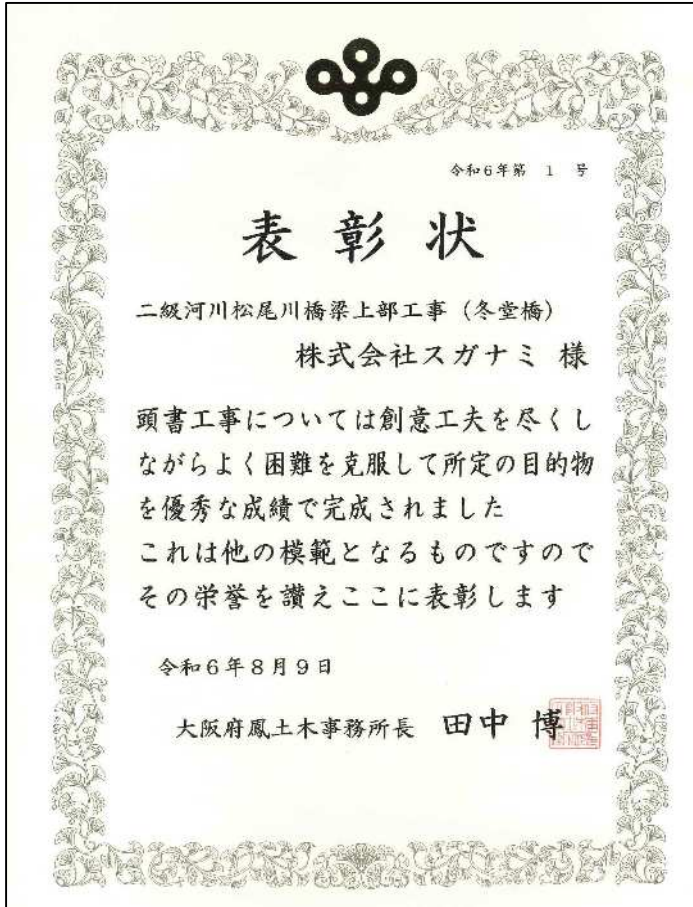 令和6年第 1 号
表彰状
二級河川松尾川橋梁上部工事（冬堂橋）
株式会社スガナミ 様
頭書工事については創意工夫を尽くし
ながらよく困難を克服して所定の目的物
を優秀な成績で完成されました
これは他の模範となるものですので
その栄誉を讃えここに表彰します
令和6年8月9日
大阪府鳳土木事務所長 田中 博